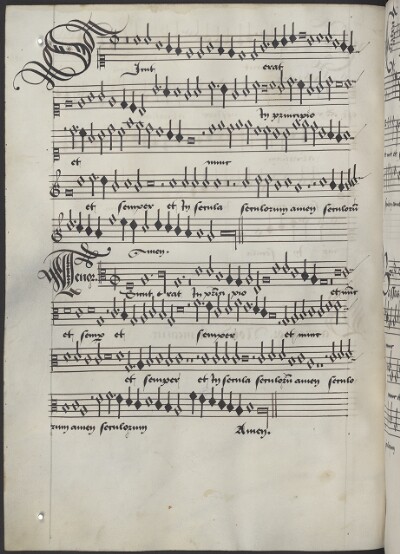 Sicut erat
In principio
et nunc
et semper et In secula seculorum amen seculorū
Amen.
Tenor
Sicut erat In principio et nūc
et semp et semper et nunc
et semper et In secula seculorū amen seculo
rum amen seculorum Amen.